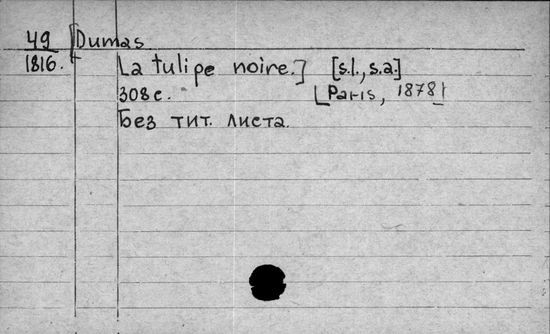 49 [Dumas
1816.
La tulipe noire.] [s.l., s.a.]
308 с. [Paris, 1878]
Без тит. листа.